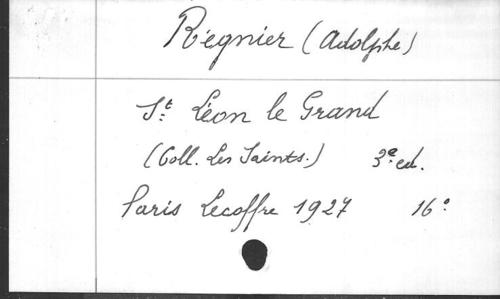 Régnier (Adolphe)
St Léon le Grand
(Coll. Les Saints.) 3e ed.
Paris Lecoffre 1927 16°